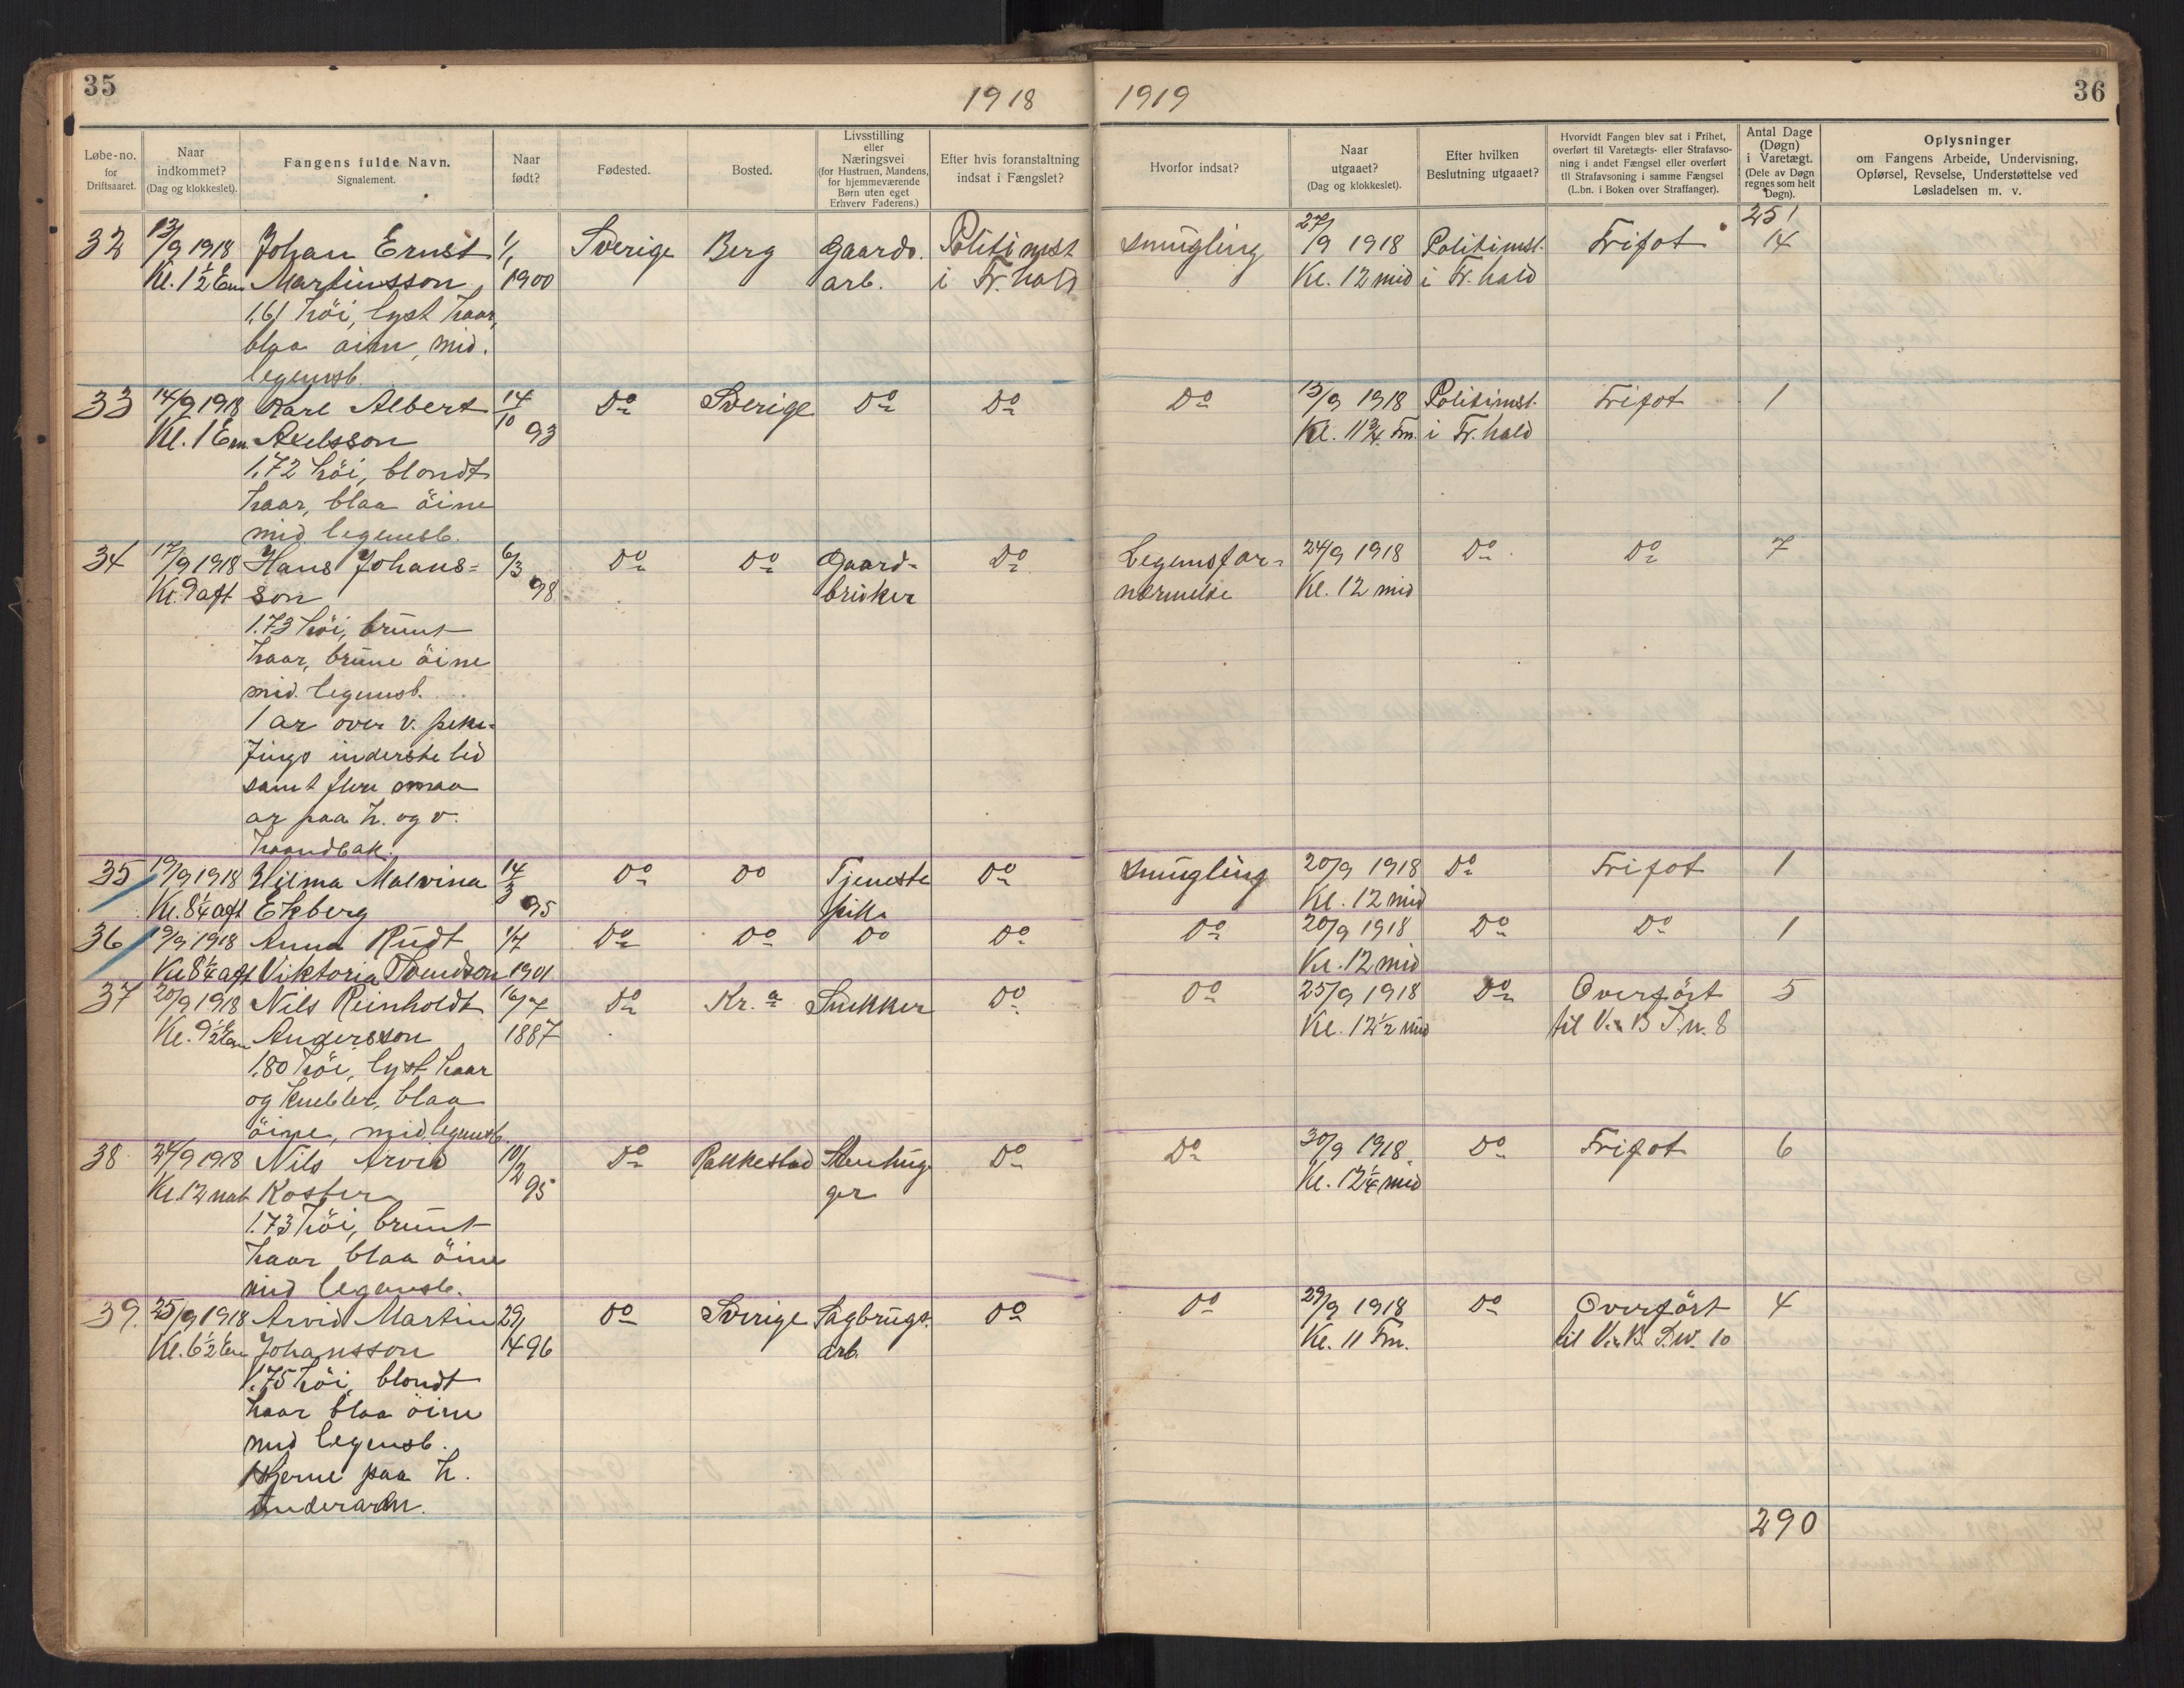 35
1918
1919
36
Løbe-no. for Driftsaaret.
Naar indkommet? (Dag og klokkeslet).
Fangens fulde Navn. Signalement.
Naar født?
Fødested.
Bosted.
Livsstilling eller Næringsvei (for Hustruen, Mandens, for hjemmeværende Børn uten eget Erhverv Faderens.)
Efter hvis foranstaltning indsat i Fængslet?
Hvorfor indsat?
Naar utgaaet? (Dag og klokkeslet).
Efter hvilken Beslutning utgaaet?
Hvorvidt Fangen blev sat i Frihet, overført til Varetægts- eller Strafavsoning i andet Fængsel eller overført til Strafavsoning i samme Fængsel (L.bn. i Boken over Straffanger).
Antal Dage (Døgn) i Varetægt. (Dele av Døgn regnes som helt Døgn).
Oplysninger om Fangens Arbeide, Undervisning, Opførsel, Revselse, Understøttelse ved Løsladelsen m. v.
251
32 13/9 1918 Johan Ernst 1/1 Sverige Berg Gaards. Politimst Smugling 27/9 1918 Politimst. Frifot 14
Kl. 1½ Em Martinsson 1900 arb. i Fr.hald Kl. 12 mid i Fr.hald
1,61 höi, lyst haar,
blaa öine, mid.
legemsb.
33 14/9 1918 Karl Albert 14/10 Do Sverige Do Do Do 15/9 1918 Politimst. Frifot 1
Kl. 1 Em. Axelsson 93 Kl. 11¾ Fm. i Fr.hald
1,72 höi, blondt
haar, blaa öine
mid legemsb.
34 17/9 1918 Hans Johans= 6/3 Do Do Gaard- Do Legemsfor- 24/9 1918 Do Do 7
Kl. 9 aft son 98 bruker nærmelse Kl. 12 mid
1.73 höi, brunt
haar, brune öine
mid. legemsb.
1 ar over v. peke-
fings inderste led
samt flere smaa
ar paa h. og v.
haandbak.
35 19/9 1918 Hilma Malvina 14/3 Do Do Tjeneste Do Smugling 20/9 1918 Do Frifot 1
Kl. 8¼ aft Ekberg 95 pik. Kl. 12 mid
36 19/9 1918 Anna Rudt 1/7 Do Do Do Do Do 20/9 1918 Do Do 1
Kl 8¼ aft Viktoria Svendson 1901 Kl. 12 mid
37 20/9 1918 Nils Reinholdt 16/7 Do Kr.a Snekker Do Do 25/9 1918 Do Overfört 5
Kl. 9½ Em Andersson 1887 Kl. 12½ mid til V. B. S. n. 8
1.80 höi, lyst haar
og knebler, blaa
öine, mid legemsb.
38 24/9 1918 Nils Arvid 10/2 Do Rakkestad Stenhug- Do Do 30/9 1918 Do Frifot 6
Kl. 12 nat Koster 95 ger Kl. 12¼ mid
1.73 höi, brunt
haar blaa öine
mid legemsb.
39. 25/9 1918 Arvid Martin 29/ Do Sverige Sagbrugs. Do Do 29/9 1918 Do Overfört 4
Kl. 6½ Em Johansson 4 96 arb. Kl. 11 Fm. til V. B. S. n. 10
1.75 höi, blondt
haar blaa öine
mid legemsb.
1 stjerne paa h.
underarm.
290